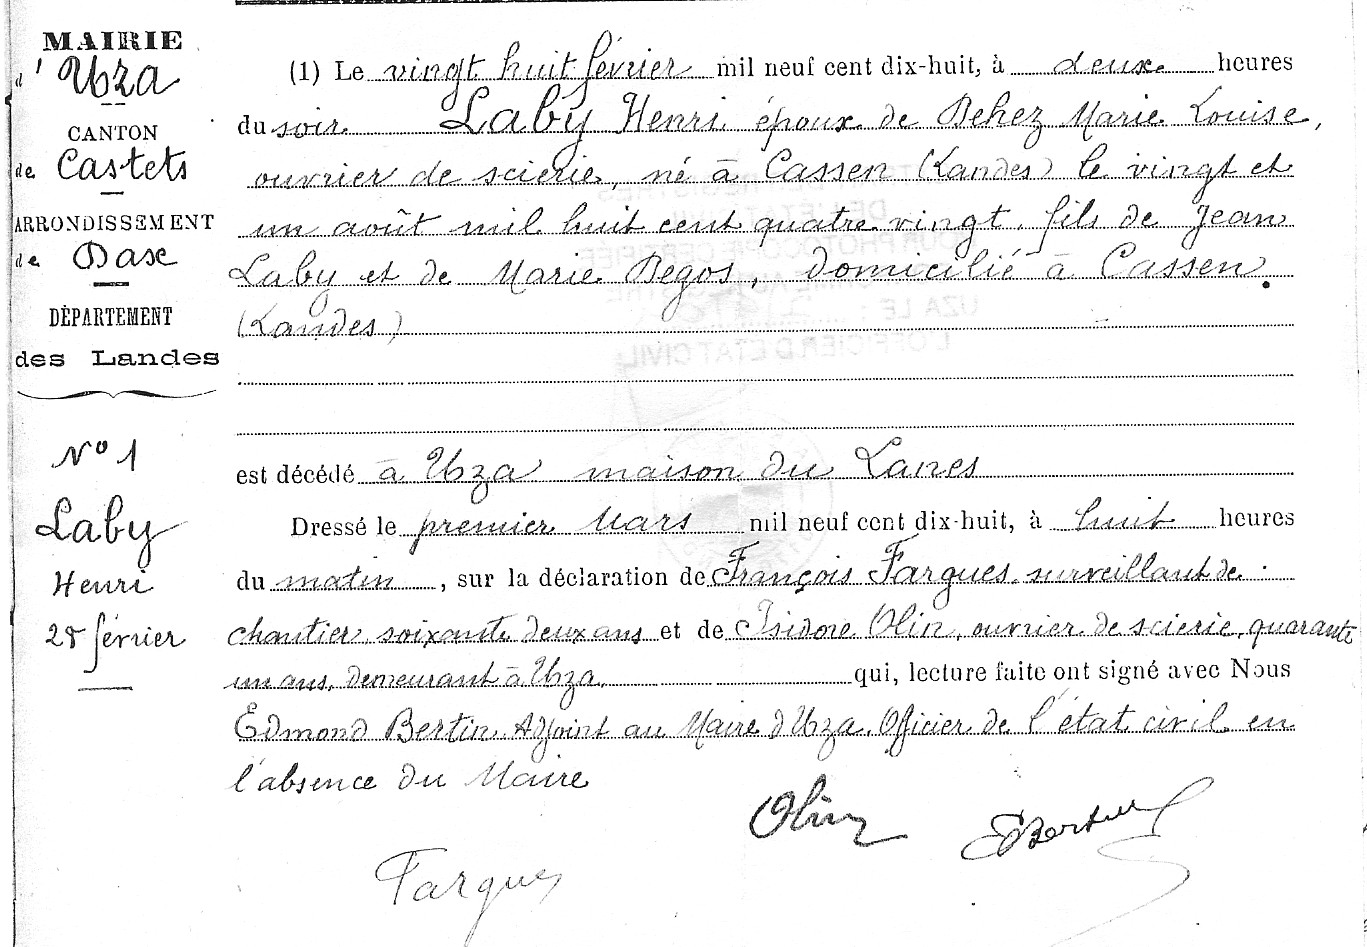 MAIRIE
d'Uza
CANTON
de Castets
ARRONDISSEMENT
de Dax
DÉPARTEMENT
des Landes
N° 1
Laby
Henri
28 février
(1) Le vingt huit février mil neuf cent dix-huit, à deux heures
du soir Laby Henri époux de Dehez Marie Louise,
ouvrier de scierie, né à Cassen (Landes) le vingt et
un août mil huit cent quatre vingt, fils de Jean
Laby et de Marie Degos, domicilié à Cassen
(Landes)
est décédé à Uza maison du Lanes
Dressé le premier Mars mil neuf cent dix-huit, à huit heures
du matin, sur la déclaration de François Fargues surveillant de
chantier soixante deux ans et de Isidore Olin, ouvrier de scierie, quarante
un ans, demeurant à Uza qui, lecture faite ont signé avec Nous
Edmond Bertin Adjoint au Maire d'Uza Officier de l'état civil en
l'absence du Maire
Olin
EBertin
Fargues
UZA LE :
L'OFFICIER D'ETAT CIVIL